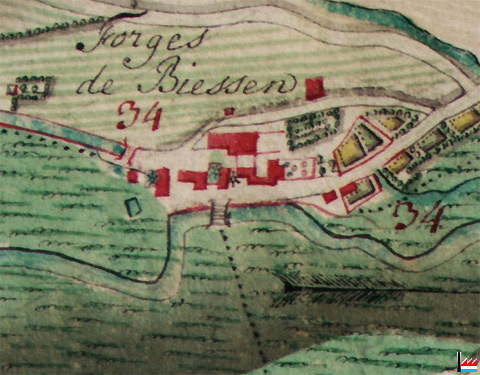 Forges
de Biessen
34
34